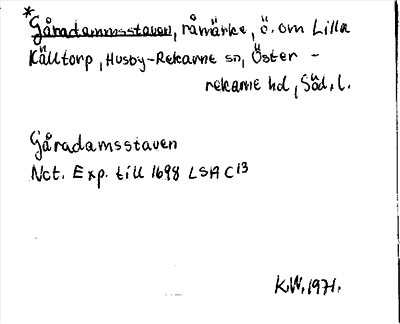 *Gåradammsstaven, råmärke, ö. om Lilla
Källtorp, Husby-Rekarne sn, Öster-
rekarne hd, Söd. l.
Gåradamsstaven
Nct. Exp. till 1698 LSA C13
K.W. 1971.